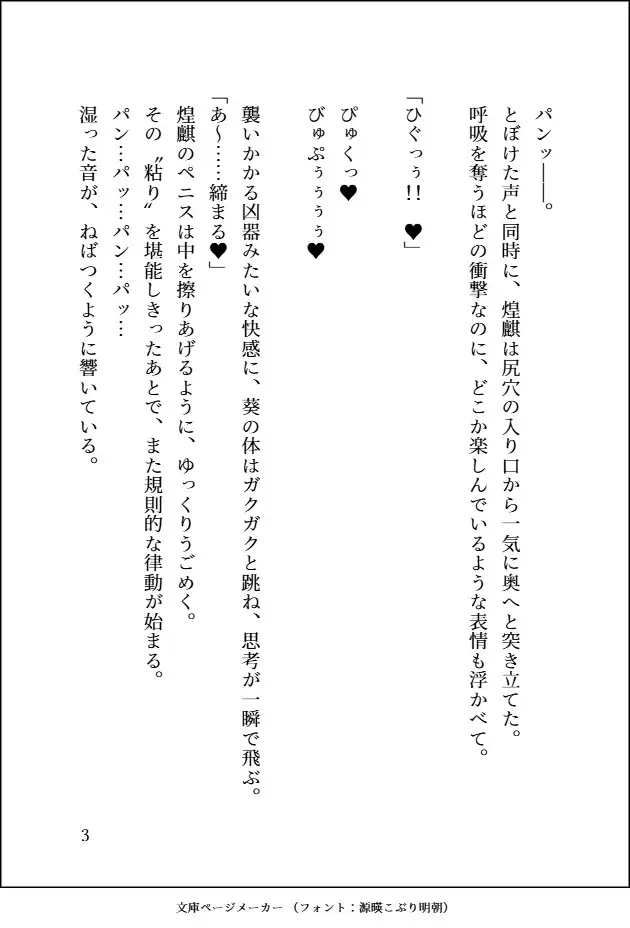 パンッ――。
とぼけた声と同時に、煌麒は尻穴の入り口から一気に奥へと突き立てた。
呼吸を奪うほどの衝撃なのに、どこか楽しんでいるような表情も浮かべて。
「ひぐっぅ!! ♥」
ぴゅくっ♥
びゅぷぅぅぅぅ♥
襲いかかる凶器みたいな快感に、葵の体はガクガクと跳ね、思考が一瞬で飛ぶ。
「あ～……締まる♥」
煌麒のペニスは中を擦りあげるように、ゆっくりうごめく。
その〝粘り〟を堪能しきったあとで、また規則的な律動が始まる。
パン…パッ…パン…パッ…
湿った音が、ねばつくように響いている。
3
文庫ページメーカー（フォント：源暎こぶり明朝）